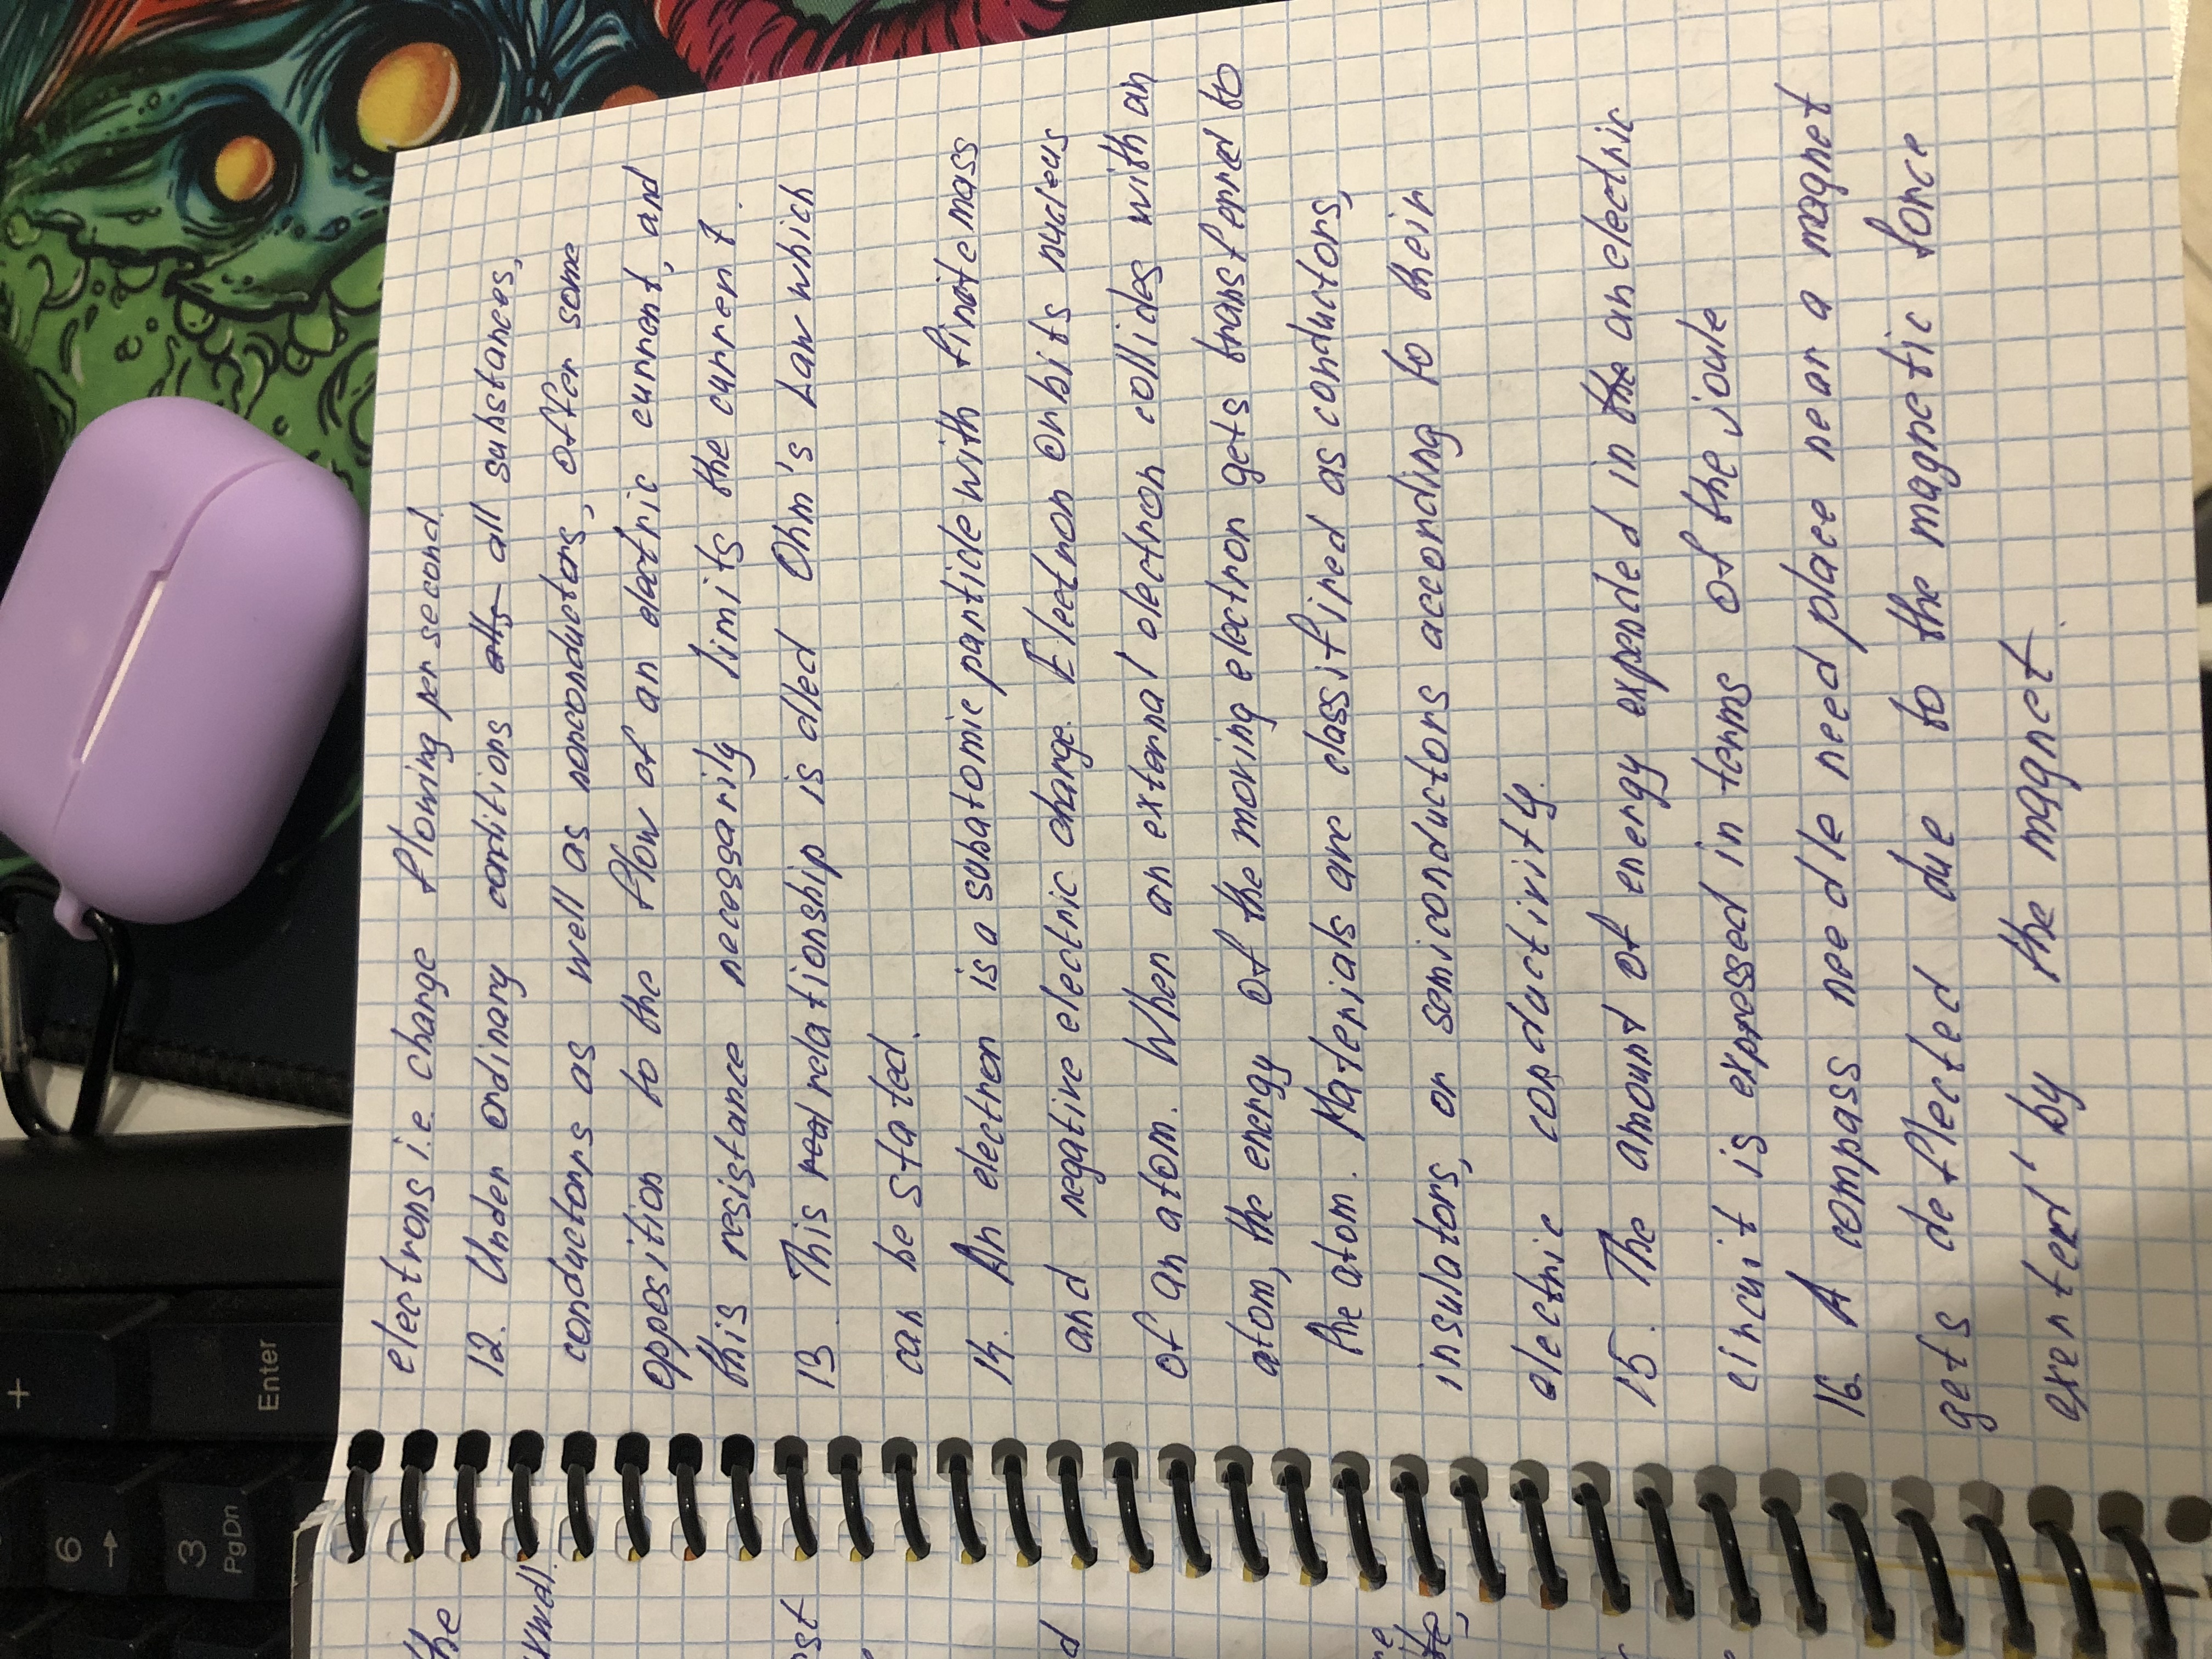 electrons i.e. charge flowing per second.
12. Under ordinary conditions all substances,
conductors as well as nonconductors, offer some
opposition to the flow of an electric current, and
this resistance necessarily limits the current.
13. This relationship is clled Ohm's Law which
can be stated.
14. An electron is a subatomic particle with finite mass
and negative electric charge. Electron orbits nucleus
of an atom. When an external electron collides with an
atom, the energy of the moving electron gets transferred to
the atom. Materials are classified as conductors,
insulators, or semiconductors according to their
electric conductivity.
15. The amount of energy expended in the an electric
circuit is expressed in terms of the joule
16. A compass needle need place near a magnet
gets deflected due to the magnetic force
exerted by the magnet.
the
st
d
+
Enter
6 →
3
PgDn